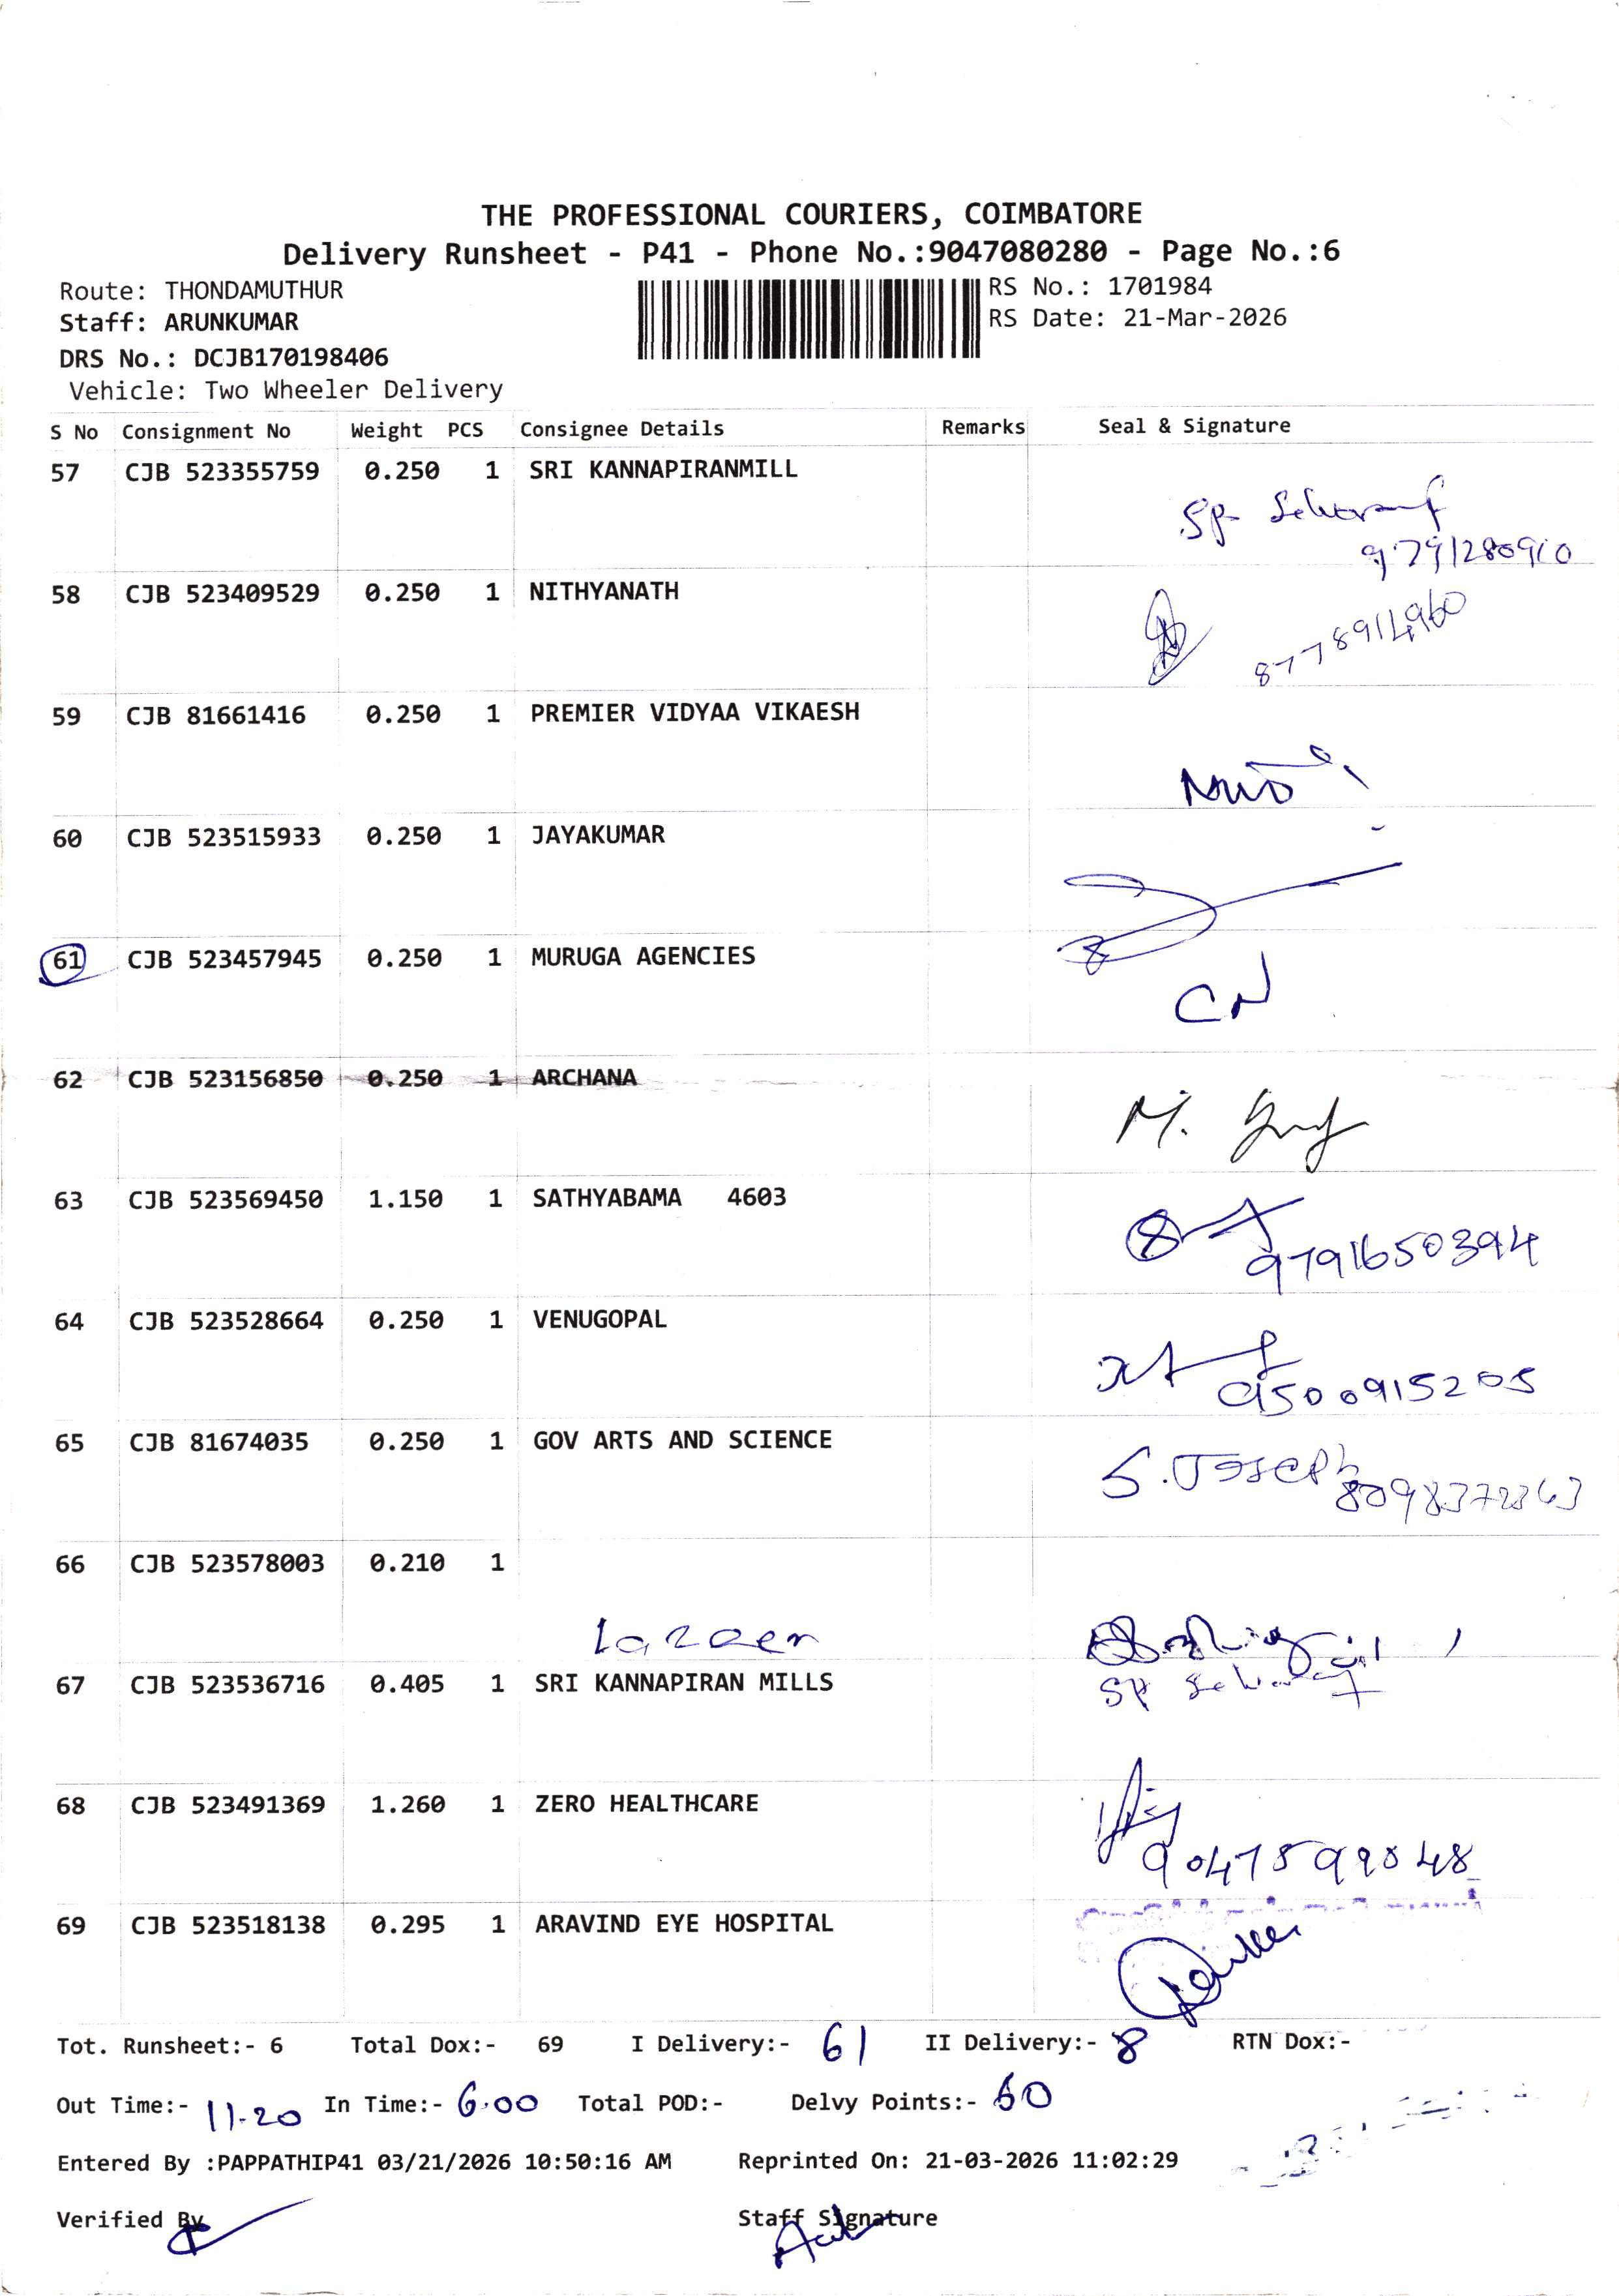 THE PROFESSIONAL COURIERS, COIMBATORE
Delivery Runsheet - P41 - Phone No.:9047080280 - Page No.:6
Route: THONDAMUTHUR RS No.: 1701984
Staff: ARUNKUMAR RS Date: 21-Mar-2026
DRS No.: DCJB170198406
Vehicle: Two Wheeler Delivery
S No Consignment No Weight PCS Consignee Details Remarks Seal & Signature
57 CJB 523355759 0.250 1 SRI KANNAPIRANMILL
9791280910
58 CJB 523409529 0.250 1 NITHYANATH
8778914960
59 CJB 81661416 0.250 1 PREMIER VIDYAA VIKAESH
60 CJB 523515933 0.250 1 JAYAKUMAR
61 CJB 523457945 0.250 1 MURUGA AGENCIES
CN
62 CJB 523156850 0.250 1 ARCHANA
M.
63 CJB 523569450 1.150 1 SATHYABAMA 4603
9791650394
64 CJB 523528664 0.250 1 VENUGOPAL
9500915205
65 CJB 81674035 0.250 1 GOV ARTS AND SCIENCE
S.Joseph
66 CJB 523578003 0.210 1
67 CJB 523536716 0.405 1 SRI KANNAPIRAN MILLS
68 CJB 523491369 1.260 1 ZERO HEALTHCARE
69 CJB 523518138 0.295 1 ARAVIND EYE HOSPITAL
Tot. Runsheet:- 6 Total Dox:- 69 I Delivery:- 61 II Delivery:- 8 RTN Dox:-
Out Time:- 11-20 In Time:- 6.00 Total POD:- Delvy Points:- 60
Entered By :PAPPATHIP41 03/21/2026 10:50:16 AM Reprinted On: 21-03-2026 11:02:29
Verified By Staff Signature